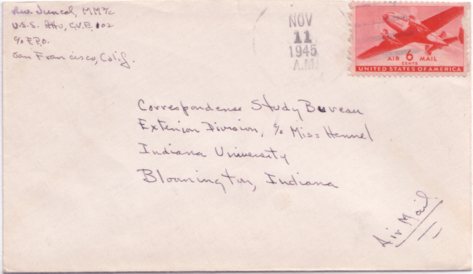 M.M.2/c
U.S.S. Attu, C.V.E. 102
c/o F.P.O.
San Francisco, Calif.
NOV
11
1945
A.M.
AIR 6 MAIL
CENTS
UNITED STATES OF AMERICA
Correspondence Study Bureau
Extension Division, c/o Miss Hennel
Indiana University
Bloomington, Indiana
Air Mail